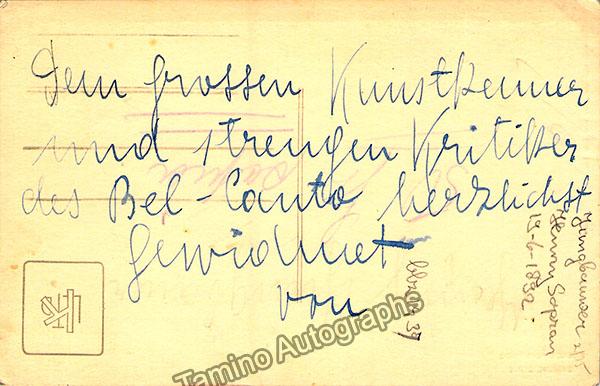 Dem grossen Kunstkenner
und strengen Kritiker
des Bel-Canto herzlichst
gewidmet
von
Jenny Sopran
19-6-1892.
Tamino Autographs